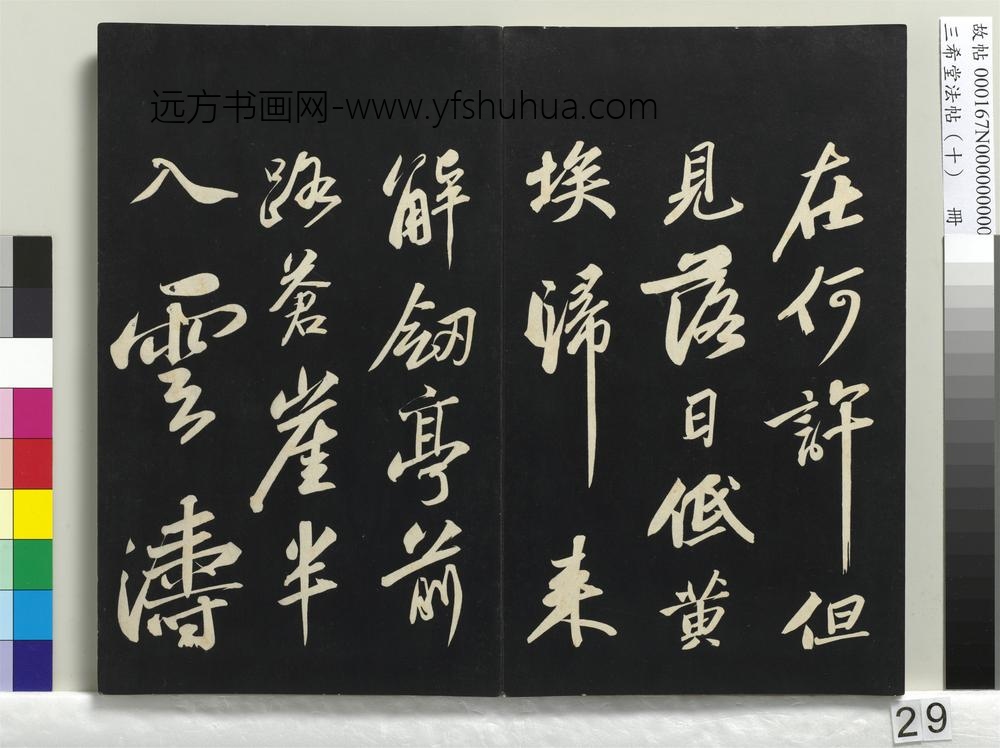 在何許但
見落日低黄
埃歸来
解劒亭前
路蒼崖半
入雲濤
远方书画网-www.yfshuhua.com
故帖 000167N000000000
三希堂法帖（十） 冊
29